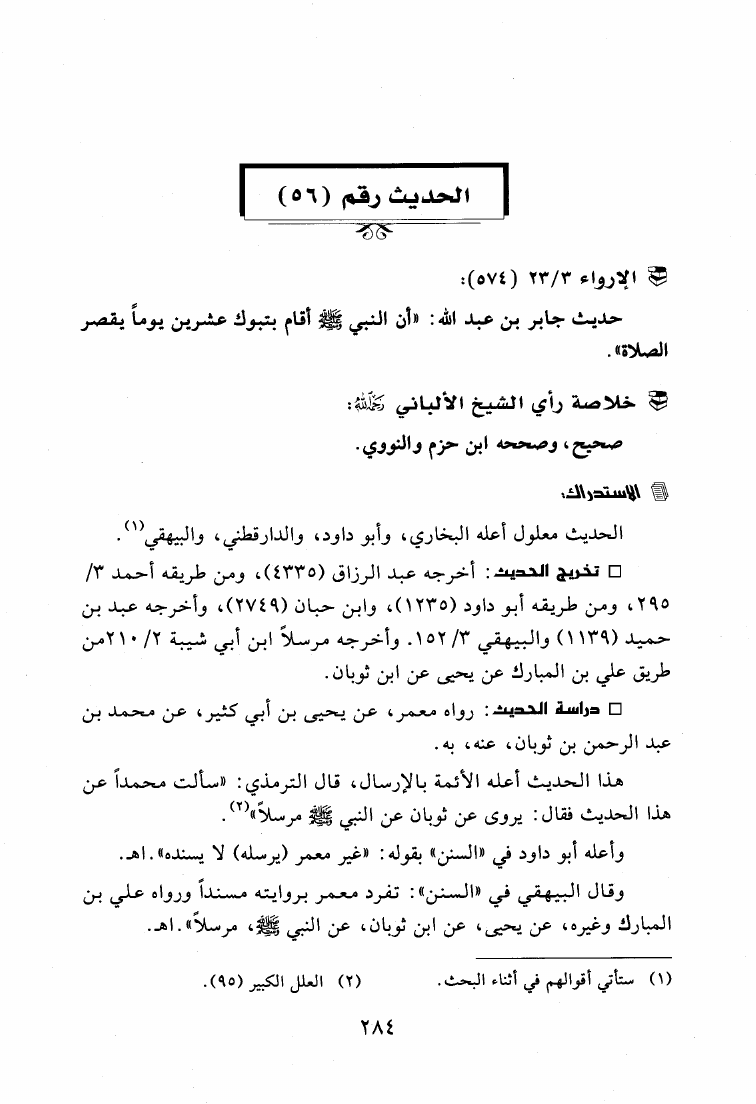 الحديث رقم (٥٦)
الإرواء ٢٣/٣ (٥٧٤):
حديث جابر بن عبد الله: «أن النبي ﷺ أقام بتبوك عشرين يوماً يقصر
الصلاة».
خلاصة رأي الشيخ الألباني رَحِمَهُ اللهُ:
صحيح، وصححه ابن حزم والنووي.
الاستدراك:
الحديث معلول أعله البخاري، وأبو داود، والدارقطني، والبيهقي(١).
□ تخريج الحديث: أخرجه عبد الرزاق (٤٣٣٥)، ومن طريقه أحمد ٣/
٢٩٥، ومن طريقه أبو داود (١٢٣٥)، وابن حبان (٢٧٤٩)، وأخرجه عبد بن
حميد (١١٣٩) والبيهقي ٣/ ١٥٢. وأخرجه مرسلاً ابن أبي شيبة ٢/ ٢١٠من
طريق علي بن المبارك عن يحيى عن ابن ثوبان.
□ دراسة الحديث: رواه معمر، عن يحيى بن أبي كثير، عن محمد بن
عبد الرحمن بن ثوبان، عنه، به.
هذا الحديث أعله الأئمة بالإرسال، قال الترمذي: «سألت محمداً عن
هذا الحديث فقال: يروى عن ثوبان عن النبي ﷺ مرسلاً»(٢).
وأعله أبو داود في «السنن» بقوله: «غير معمر (يرسله) لا يسنده».اهـ.
وقال البيهقي في «السنن»: تفرد معمر بروايته مسنداً ورواه علي بن
المبارك وغيره، عن يحيى، عن ابن ثوبان، عن النبي ﷺ، مرسلاً».اهـ.
(١) ستأتي أقوالهم في أثناء البحث. (٢) العلل الكبير (٩٥).
٢٨٤